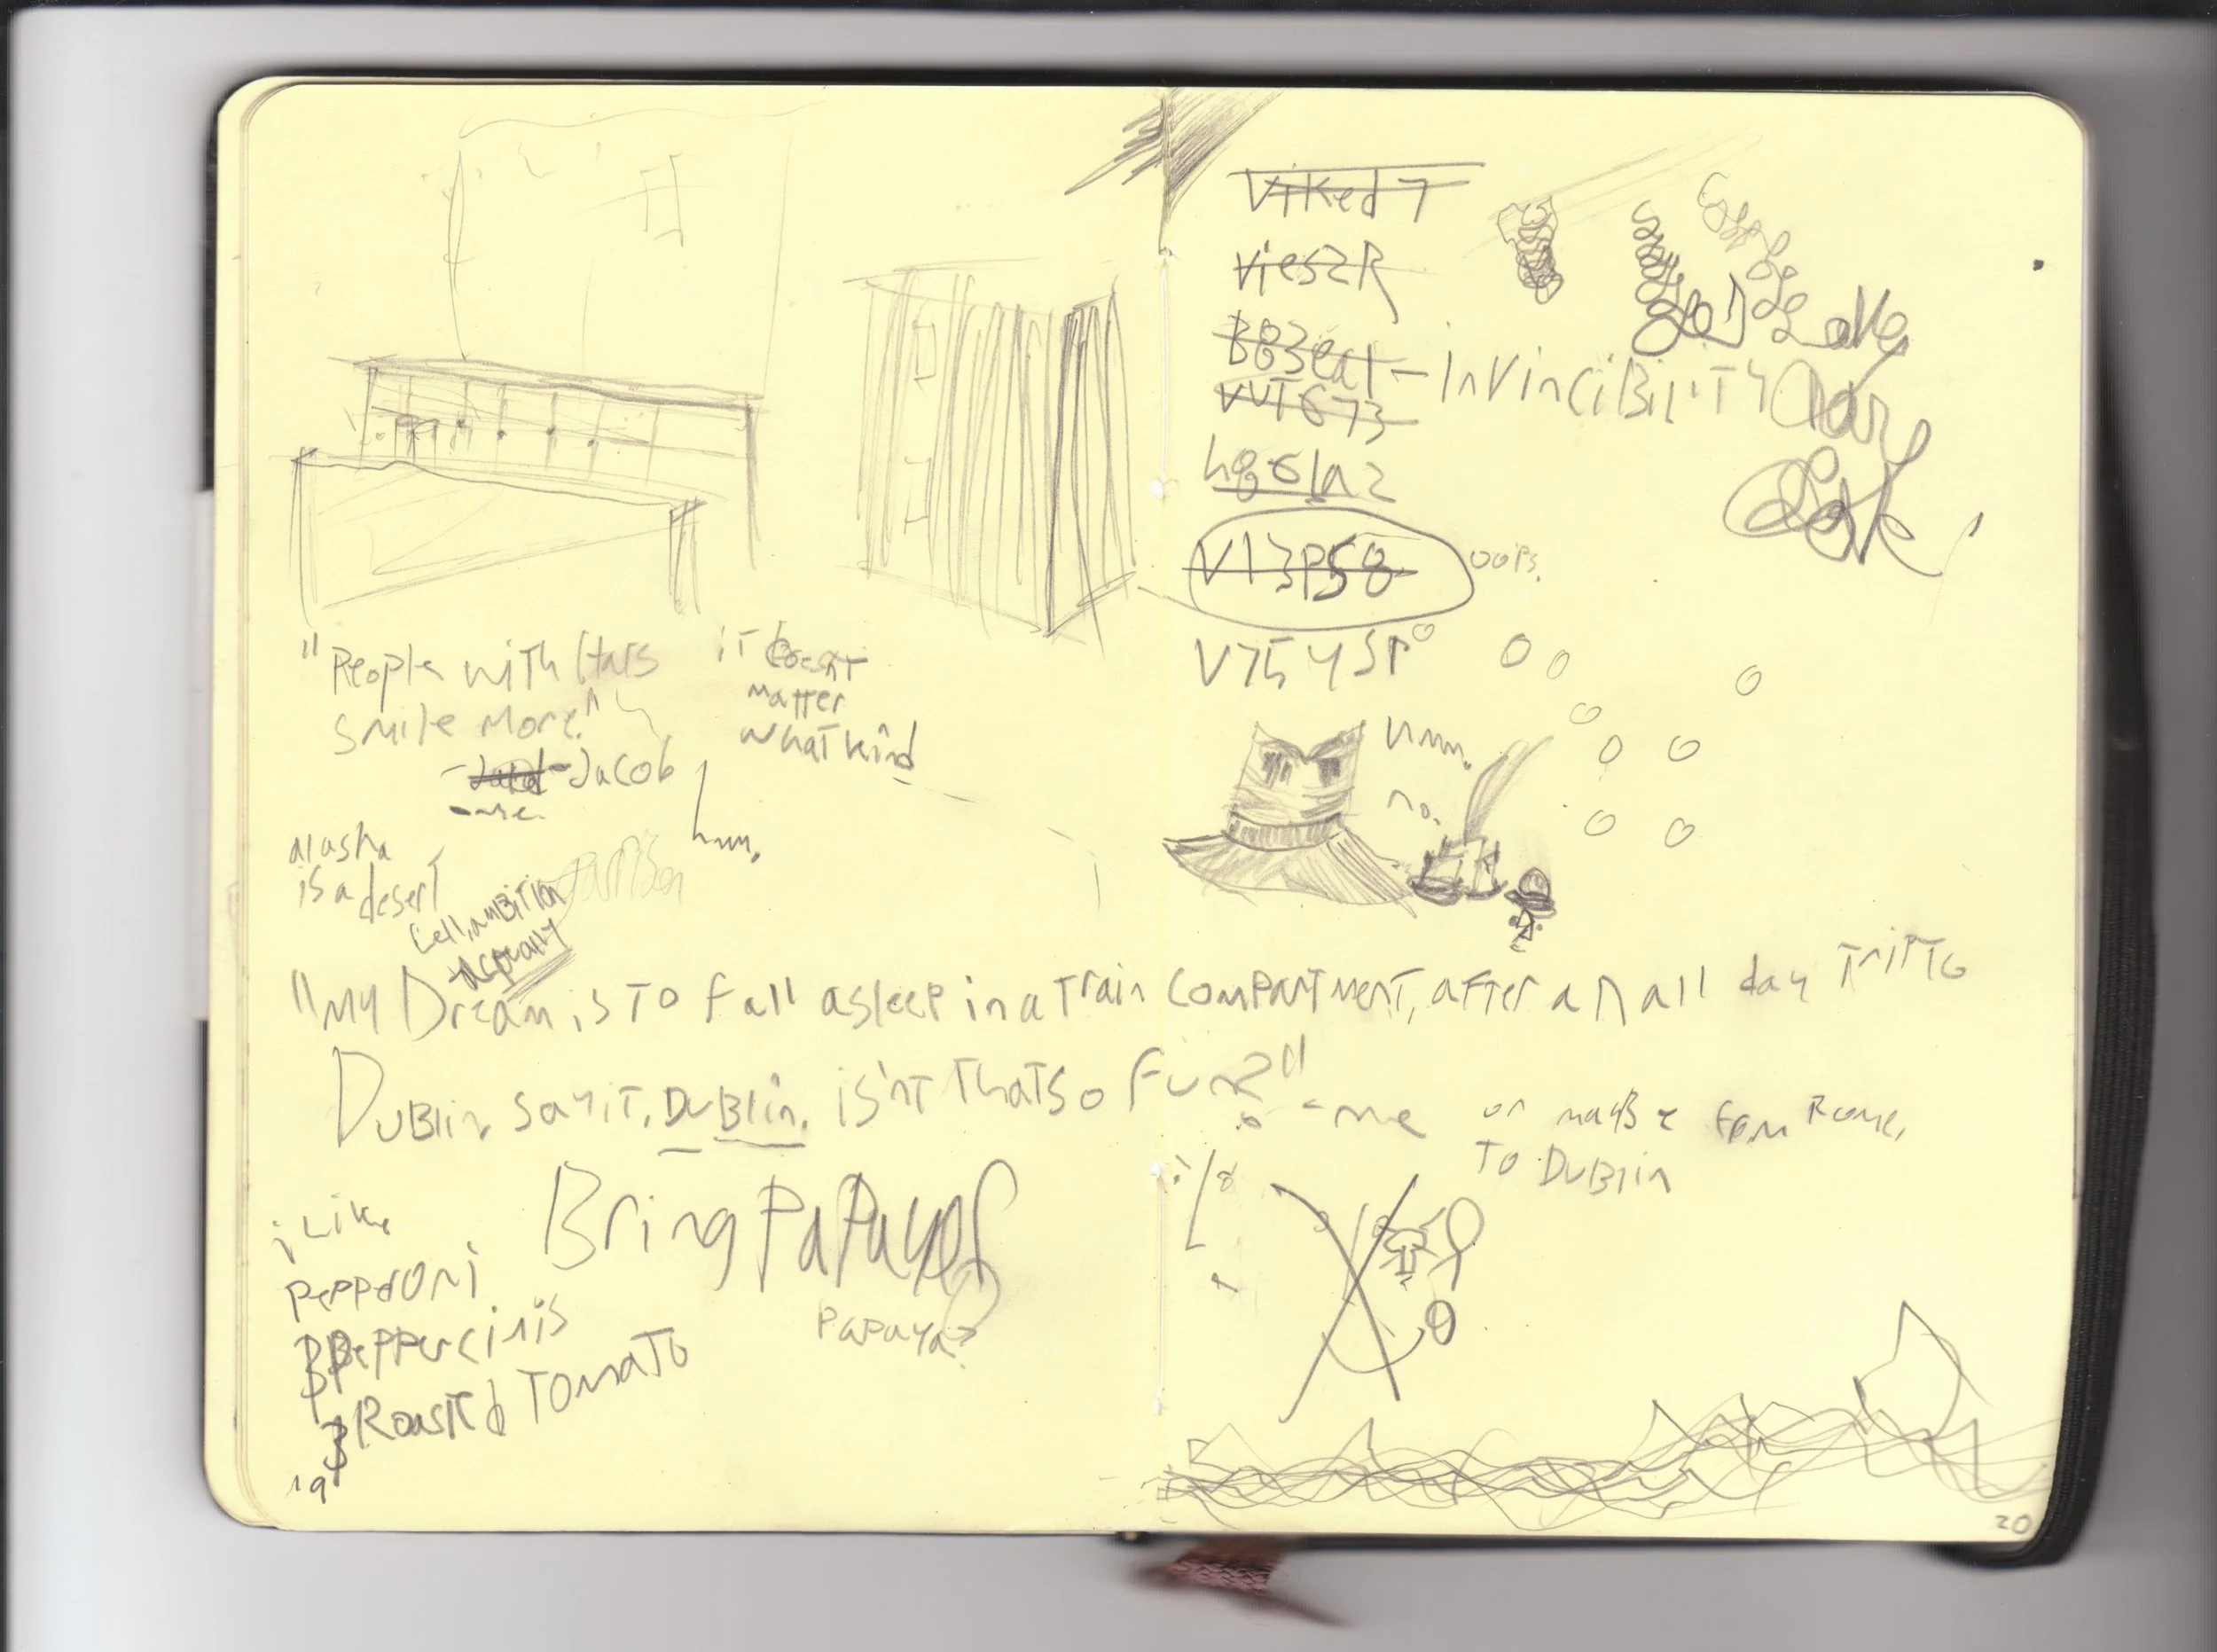 "People with Hats
smile more."
- Jacob
- me.
it doesnt
matter
what kind
hmm.
alaska
is a desert
"My Dream is to fall asleep in a train compartment, after an all day trip to
Dublin, say it. Dublin. isn't that so fun?"
- me
or maybe from Rome,
to Dublin
i Like
pepperoni
Peppercinis
Roasted Tomato
Bring Papayas
Papaya?
19
Viked 7
vies2R
B83eat - invincibility
VUT673
h861a2
V13P58
oops.
V75YSP
hmm.
no.
20